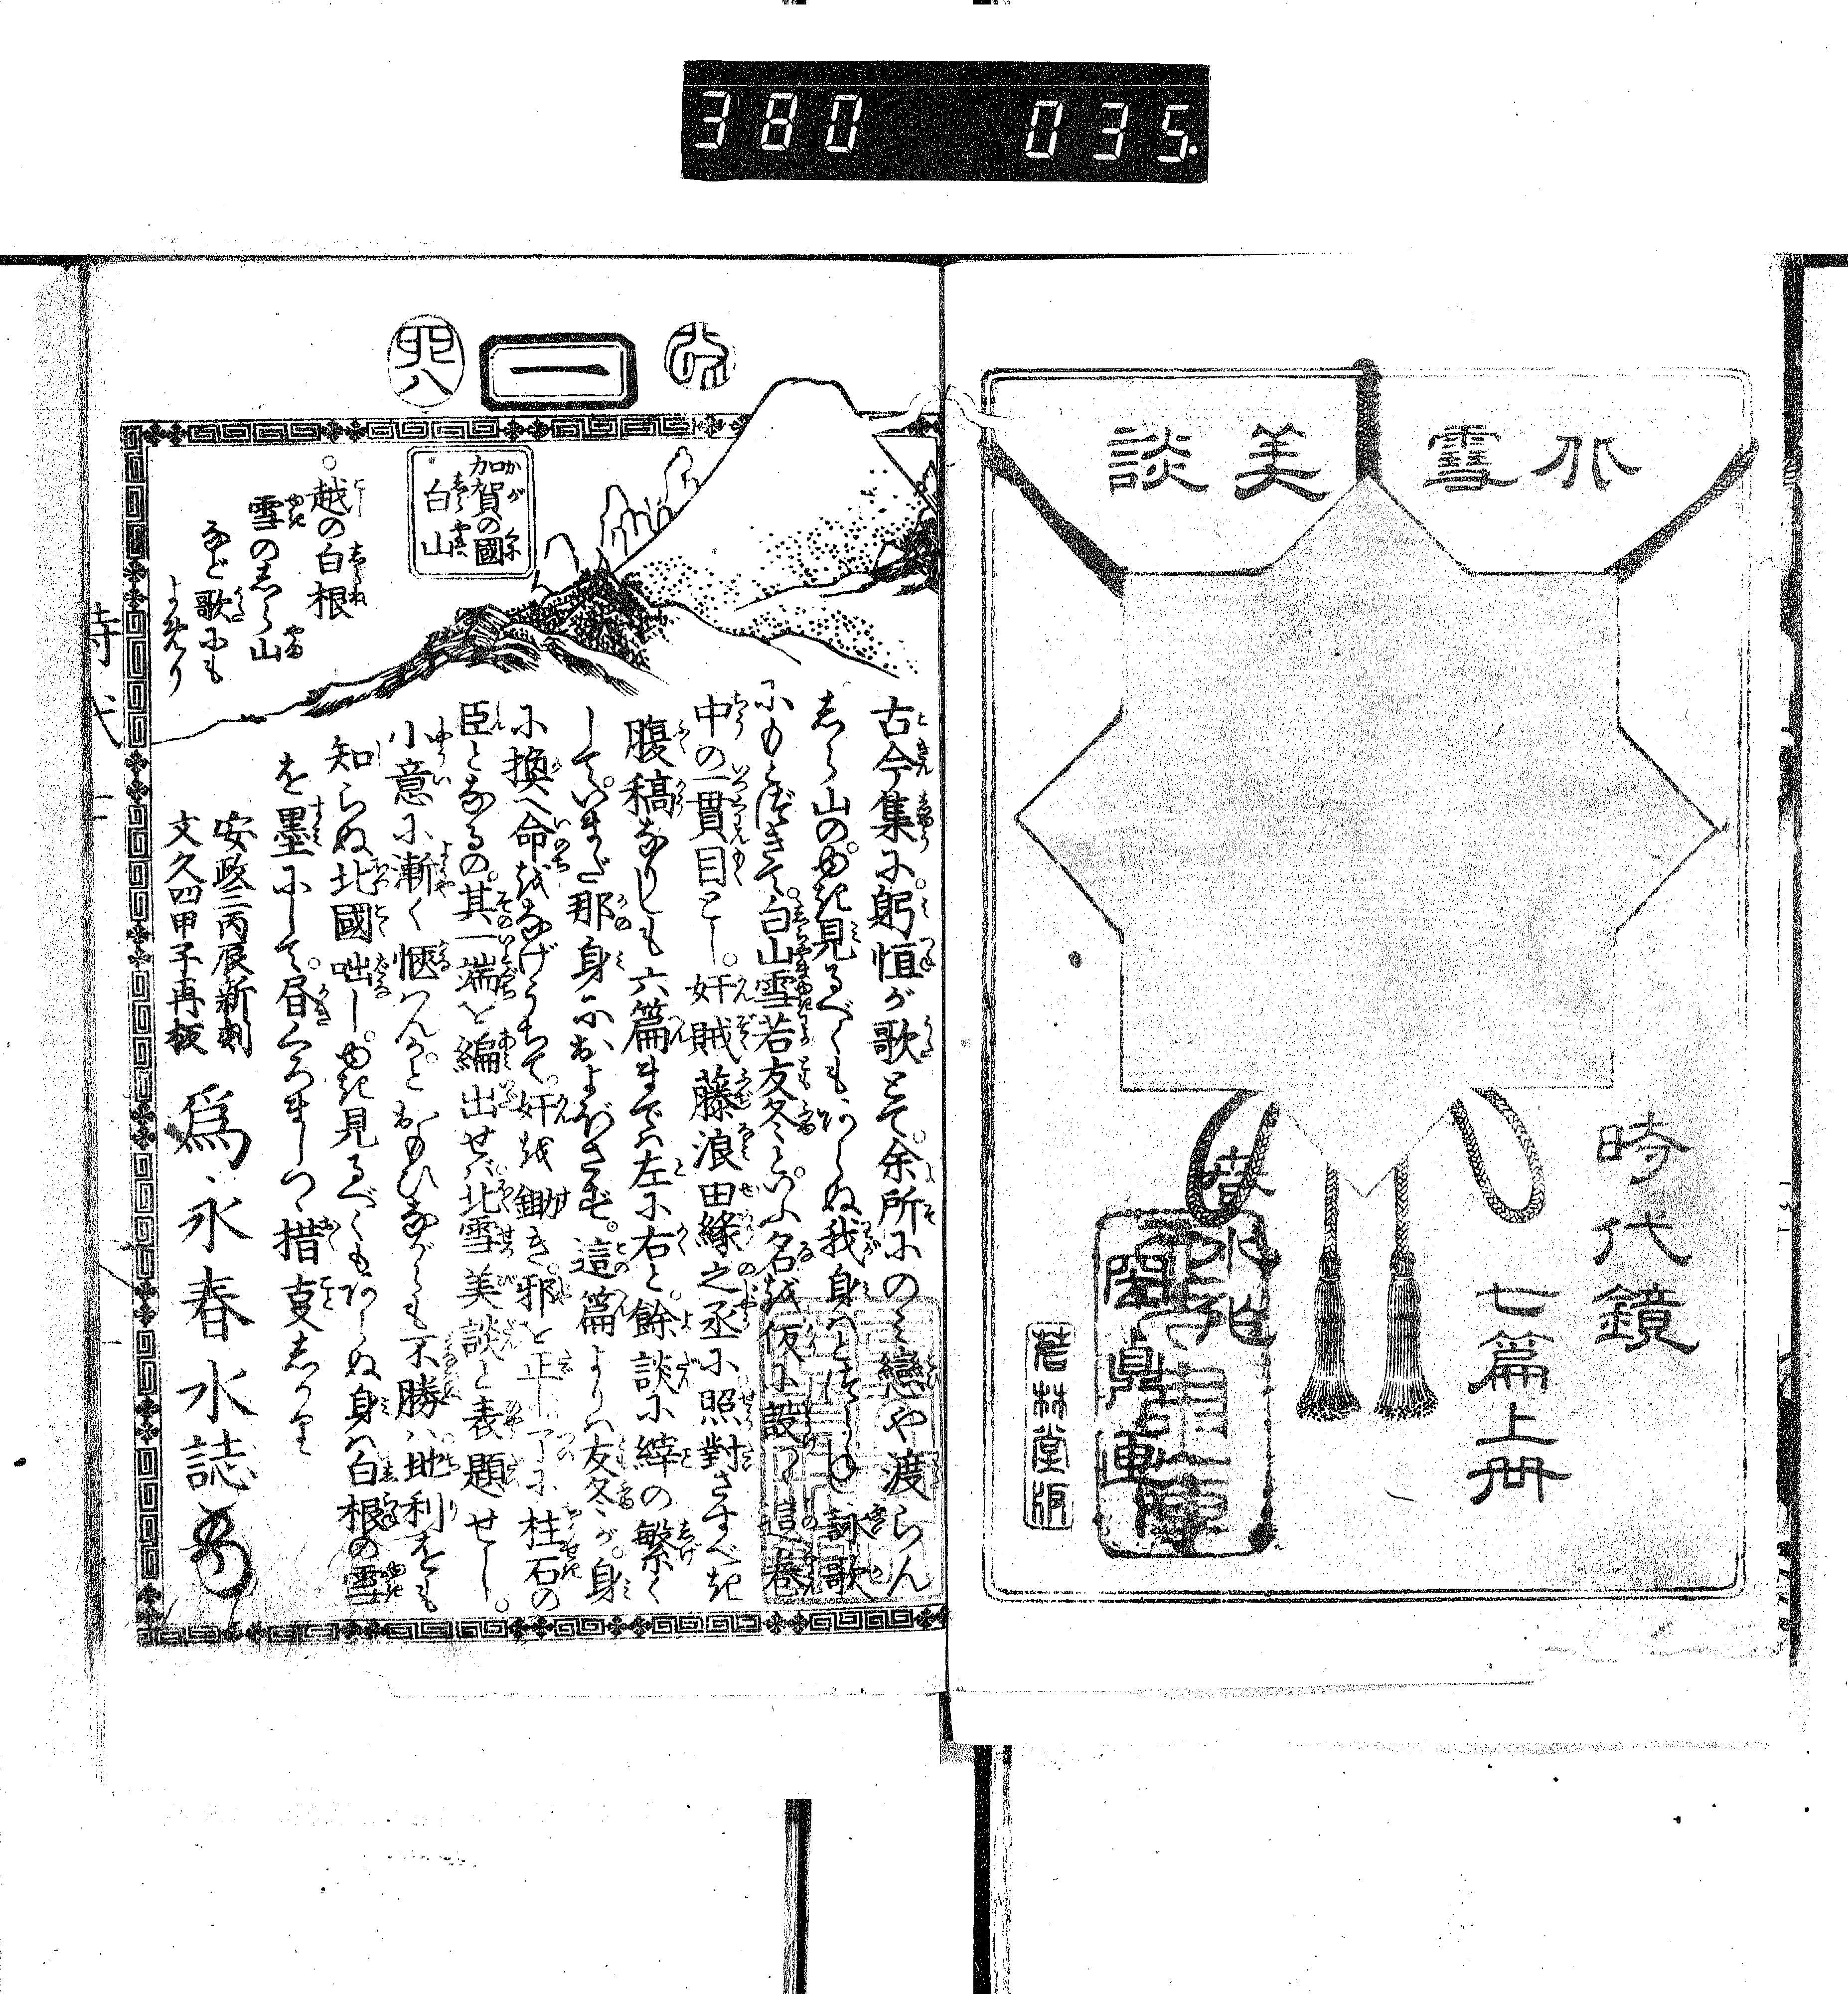 380 035.
北雪美談
時代鏡
七篇上冊
若林堂版
一
加賀の國
白山
越の白根
雪のしら山
など歌にも
よめり
古今集に。躬恒が歌とて。余所にのみ戀や渡らん
しら山のゆき見るべくもあらぬ我身はとよみし詠歌
にもとづきて。白山雪若友冬といふ名を仮に設つ。這巻
中の一貫目とし。奸賊藤浪由縁之丞に照對さすべき
腹稿なりしも六篇までは左に右と。餘談に縡の繁く
して。いまだ那身におよばざりき。這篇よりは友冬が。身
に換へ命をなげうちて。奸を鋤き。邪を正し了に柱石の
臣となるの。其一端を編出せば北雪美談と表題せし。
小意に漸く愜はんかとおもひながらも不勝は地利をも
知らぬ北國咄し。ゆき見るべくもあらぬ身は白根の雪
を墨にして。
安政三丙辰新刻
文久四甲子再板
爲永春水誌
時代